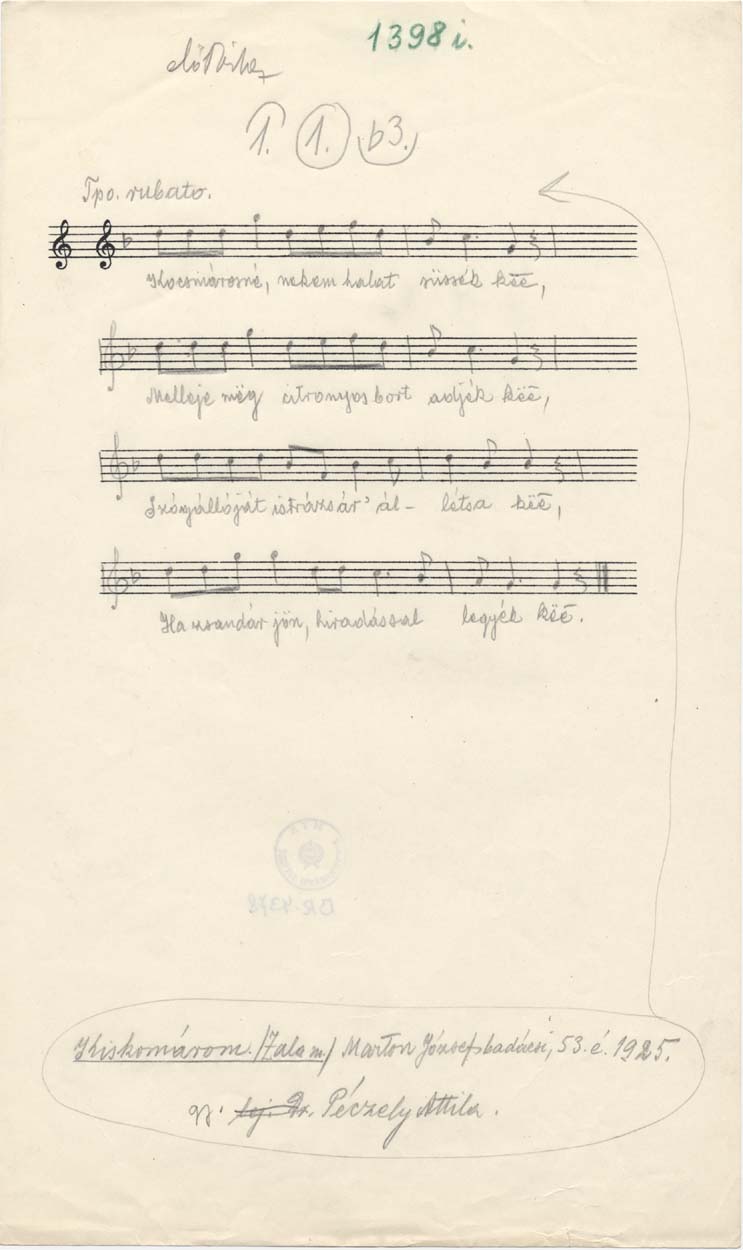 1398 i.
1. 1. b3.
Tpo. rubato.
Kocsmárosné, nekem halat süssék këë,
Melleje mëg citronyos bort adjék këë,
Szógállóját istrázsár' ál- létsa këë,
Ha zsandár jön, hiradással legyék këë.
Kiskomárom. /Zala m./ Marton József badácsi, 53. é. 1925.
gy. Péczely Attila.